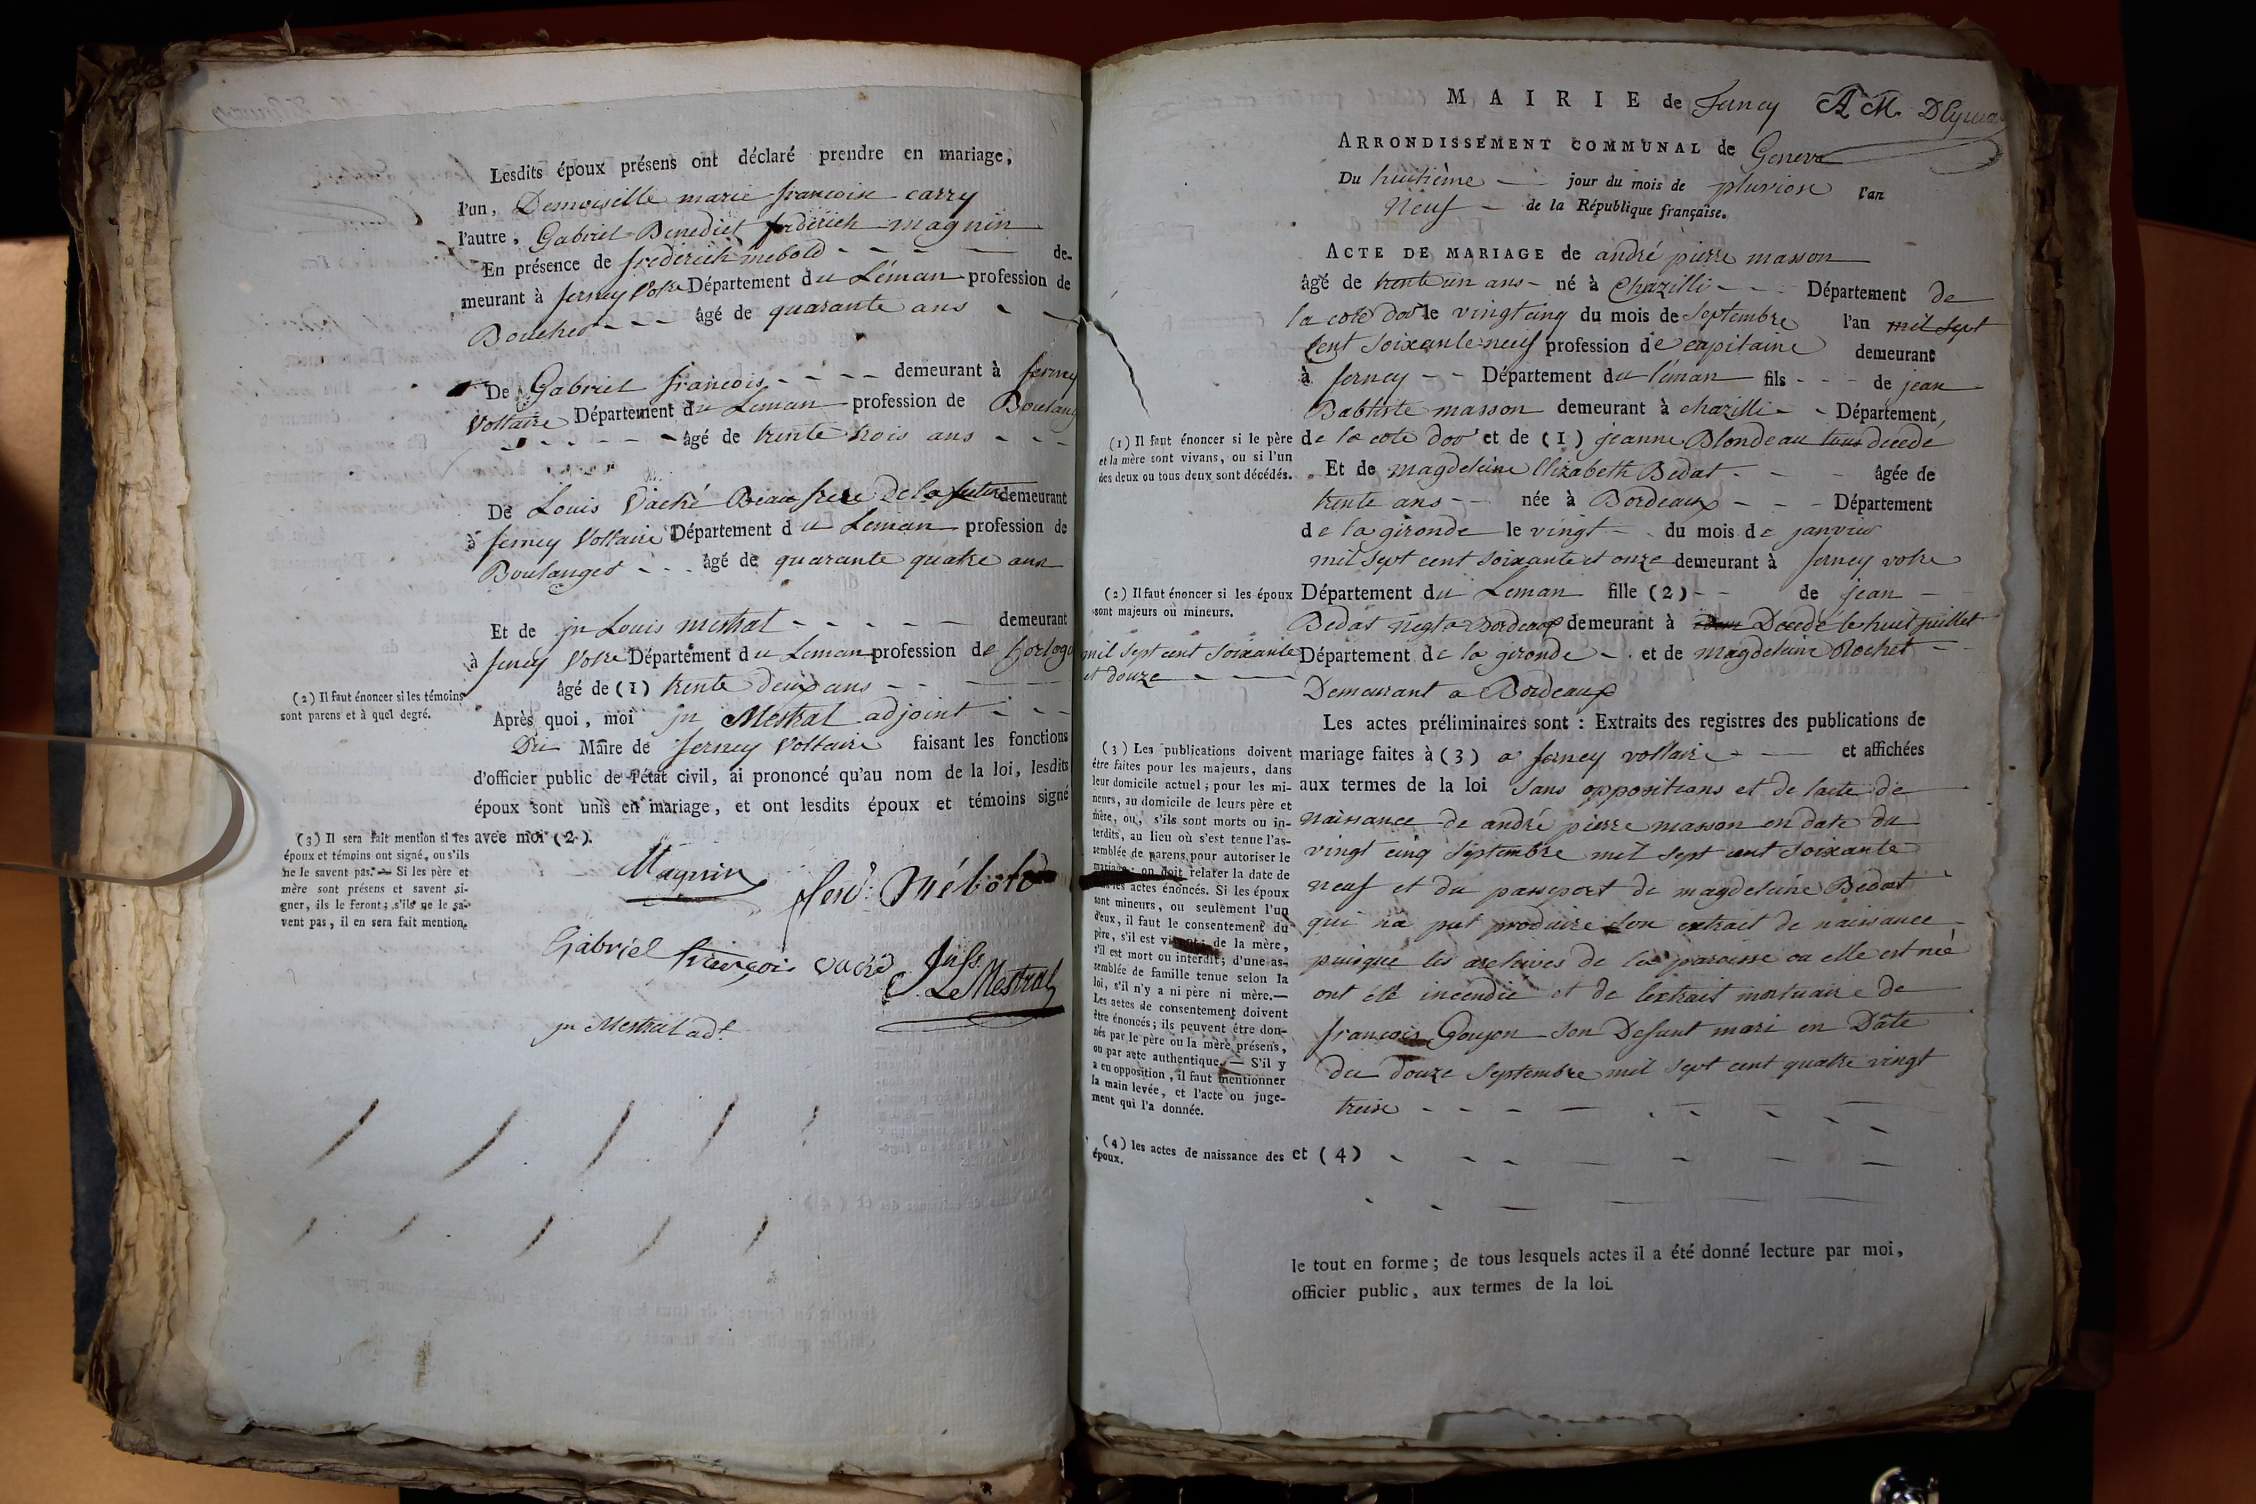 Lesdits époux présens ont déclaré prendre en mariage,
l'un, Demoiselle marie francoise carry
l'autre, Gabriel Benedict frederich magnin
En présence de frederich mebold de-
meurant à ferney Votre Département du Léman profession de
Boucher âgé de quarante ans
De Gabriel francois demeurant à ferney
Voltaire Département du Leman profession de Boulang
âgé de trente trois ans
De Louis Vaché Beau frere De la future demeurant
à ferney Voltaire Département du Leman profession de
Boulanger âgé de quarante quatre ans
Et de jn Louis mestral demeurant
à ferney Votre Département du Leman profession de horloge
âgé de (1) trente deux ans
(2) Il faut énoncer si les témoins
sont parens et à quel degré.
Après quoi, moi jn Mestral adjoint
Du Maire de ferney Voltaire faisant les fonctions
d'officier public de l'état civil, ai prononcé qu'au nom de la loi, lesdits
époux sont unis en mariage, et ont lesdits époux et témoins signé
avec moi (2).
(3) Il sera fait mention si les
époux et témoins ont signé, ou s'ils
ne le savent pas. — Si les père et
mère sont présens et savent si-
gner, ils le feront; s'ils ne le sa-
vent pas, il en sera fait mention.
Magnin
Mébold
Gabriel françois vaché
LeMestral
jn Mestral adt.
MAIRIE de Ferney
ARRONDISSEMENT COMMUNAL de Geneve
Du huitième jour du mois de pluviose l'an
Neuf de la République française.
ACTE DE MARIAGE de andré pierre masson
âgé de trente un ans né à Chazilli Département de
la cote dor le vingt cinq du mois de Septembre l'an mil sept
Cent Soixante neuf profession de capitaine demeurant
à ferney Département du léman fils de jean
Babtiste masson demeurant à chazilli Département
de la cote dor et de (1) jeanne Blondeau tous decedé
(1) Il faut énoncer si le père
et la mère sont vivans, ou si l'un
des deux ou tous deux sont décédés.
Et de magdeleine Elizabeth Bedat âgée de
trente ans née à Bordeaux Département
de la gironde le vingt du mois de janvier
mil sept cent soixante et onze demeurant à ferney votre
(2) Il faut énoncer si les époux
sont majeurs ou mineurs.
Département du Leman fille (2) de jean
Bedat Negt a Bordeaux demeurant à Decedé le huit juillet
mil sept cent soixante
et douze
Département de la gironde et de magdeleine Rochet
Demeurant a Bordeaux
Les actes préliminaires sont : Extraits des registres des publications de
mariage faites à (3) a ferney voltaire et affichées
aux termes de la loi sans oppositions et de lacte de
naissance de andré pierre masson en date du
vingt cinq septembre mil sept cent soixante
neuf et du passeport de magdeleine Bedat
qui n'a put produire son extrait de naissance
puisque les archives de la paroisse ou elle est née
ont été incendie et de lextrait mortuaire de
francois Goujon son Defunt mari en Date
du douze Septembre mil sept cent quatre vingt
treise
(3) Les publications doivent
être faites pour les majeurs, dans
leur domicile actuel; pour les mi-
neurs, au domicile de leurs père et
mère, ou, s'ils sont morts ou in-
terdits, au lieu où s'est tenue l'as-
semblée de parens pour autoriser le
mariage; on doit relater la date de
les actes énoncés. Si les époux
sont mineurs, ou seulement l'un
d'eux, il faut le consentement du
père, s'il est vivant; de la mère,
s'il est mort ou interdit; d'une as-
semblée de famille tenue selon la
loi, s'il n'y a ni père ni mère.—
Les actes de consentement doivent
être énoncés; ils peuvent être don-
nés par le père ou la mère présens,
ou par acte authentique. — S'il y
a eu opposition, il faut mentionner
la main levée, et l'acte ou juge-
ment qui l'a donnée.
(4) les actes de naissance des
époux.
et (4)
le tout en forme; de tous lesquels actes il a été donné lecture par moi,
officier public, aux termes de la loi.